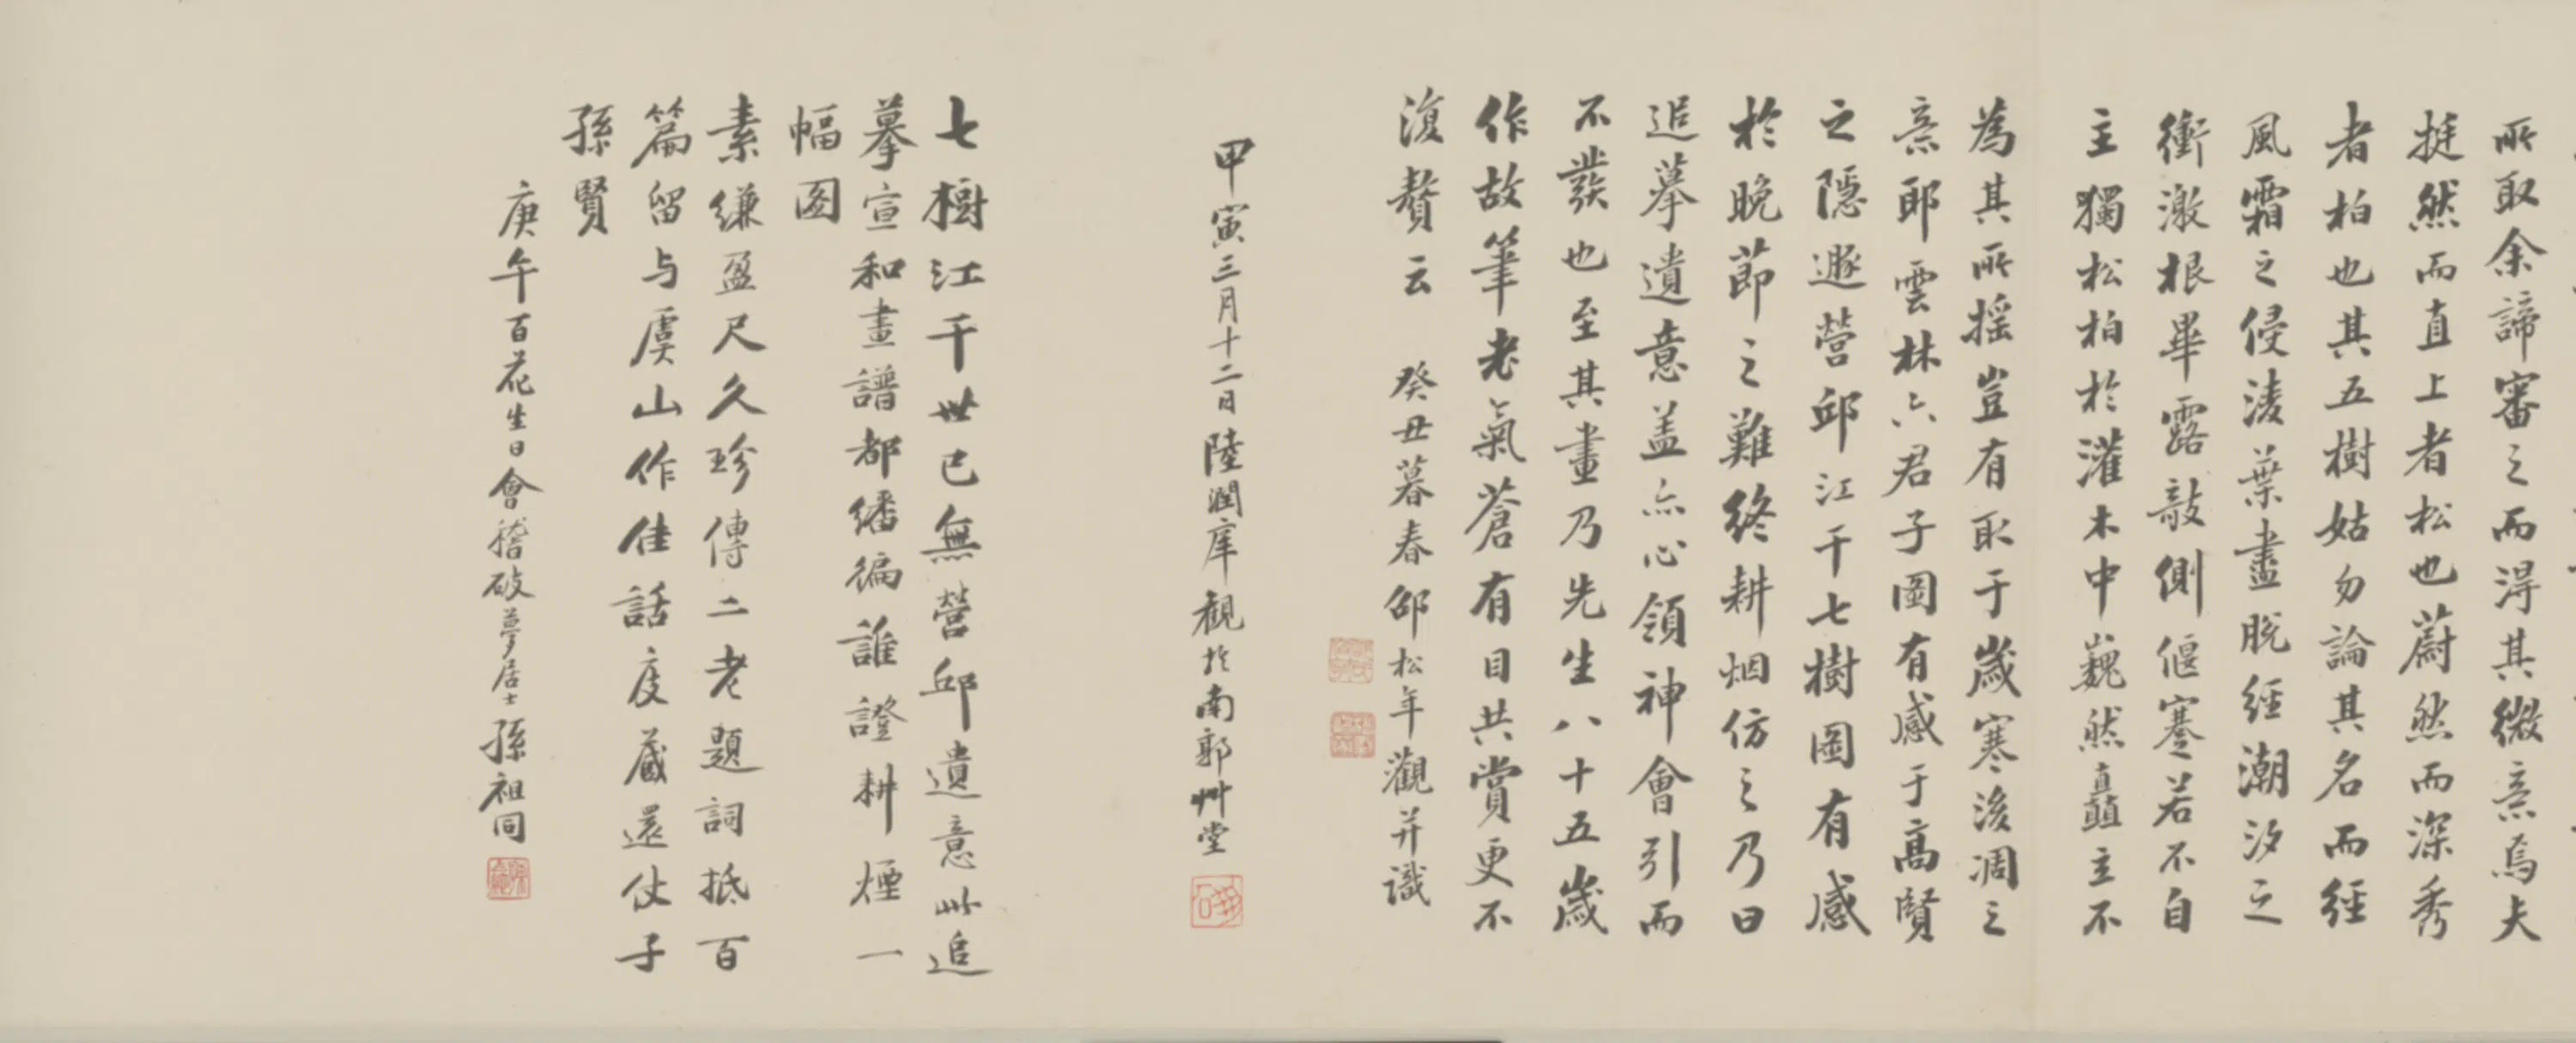 所取余諦審之而淂其微意焉夫
挺然而直上者松也蔚然而深秀
者柏也其五樹姑勿論其名而經
風霜之侵淩葉盡脫經潮汐之
衝激根畢露敧側偃蹇若不自
主獨松柏於灌木中巍然矗立不
為其所搖豈有取于歲寒後凋之
意耶雲林六君子圖有感于高賢
之隱遯營邱江干七樹圖有感
於晚節之難終耕烟仿之乃曰
追摹遺意盖亦心領神會引而
不發也至其畫乃先生八十五歲
作故筆老氣蒼有目共賞更不
復贅云 癸丑暮春邵松年觀并識
甲寅三月十二日陸潤庠觀於南郭艸堂
七樹江干世已無營邱遺意此追
摹宣和畫譜都繙徧誰證耕煙一
幅图
素縑盈尺久珍傳二老題詞抵百
篇留与虞山作佳話度藏還仗子
孫賢
庚午百花生日會稽破夢居士孫祖同